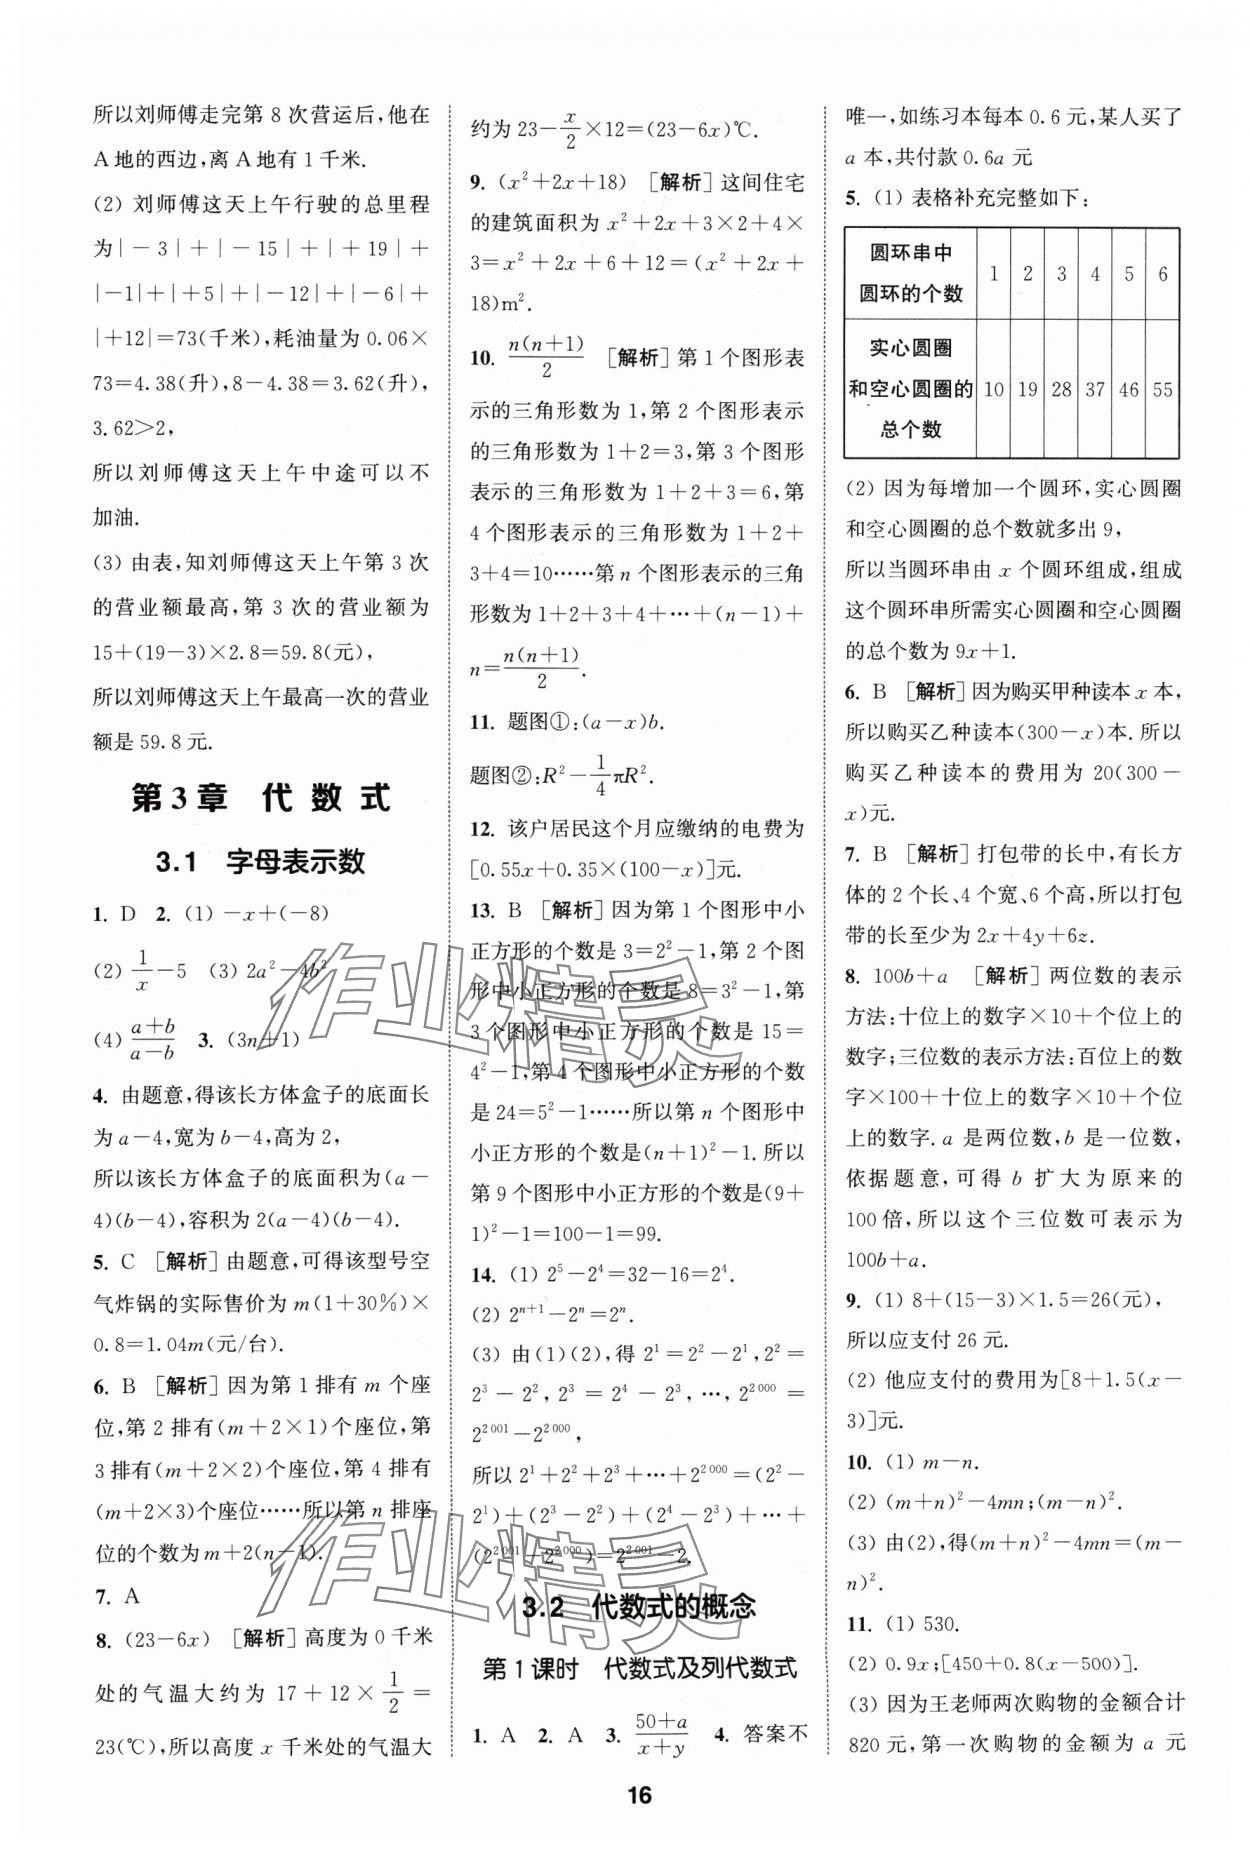 所以刘师傅走完第 8 次营运后,他在
A 地的西边,离 A 地有 1 千米.
(2) 刘师傅这天上午行驶的总里程
为|-3|+|-15|+|+19|+
|-1|+|+5|+|-12|+|-6|+
|+12|=73(千米),耗油量为 0.06×
73=4.38(升),8-4.38=3.62(升),
3.62>2,
所以刘师傅这天上午中途可以不
加油.
(3) 由表,知刘师傅这天上午第 3 次
的营业额最高,第 3 次的营业额为
15+(19-3)×2.8=59.8(元),
所以刘师傅这天上午最高一次的营业
额是 59.8 元.
第 3 章 代 数 式
3.1 字母表示数
1. D 2. (1) -x+(-8)
(2) 1/x-5 (3) 2a²-4b²
(4) (a+b)/(a-b) 3. (3n+1)
4. 由题意,得该长方体盒子的底面长
为 a-4,宽为 b-4,高为 2,
所以该长方体盒子的底面积为(a-
4)(b-4),容积为 2(a-4)(b-4).
5. C [解析]由题意,可得该型号空
气炸锅的实际售价为 m(1+30%)×
0.8=1.04m(元/台).
6. B [解析]因为第 1 排有 m 个座
位,第 2 排有(m+2×1)个座位,第
3 排有(m+2×2)个座位,第 4 排有
(m+2×3)个座位……所以第 n 排座
位的个数为 m+2(n-1).
7. A
8. (23-6x) [解析]高度为 0 千米
处的气温大约为 17+12×1/2=
23(℃),所以高度 x 千米处的气温大
约为 23-x/2×12=(23-6x)℃.
9. (x²+2x+18) [解析]这间住宅
的建筑面积为 x²+2x+3×2+4×
3=x²+2x+6+12=(x²+2x+
18)m².
10. n(n+1)/2 [解析]第 1 个图形表
示的三角形数为 1,第 2 个图形表示
的三角形数为 1+2=3,第 3 个图形
表示的三角形数为 1+2+3=6,第
4 个图形表示的三角形数为 1+2+
3+4=10……第 n 个图形表示的三角
形数为 1+2+3+4+…+(n-1)+
n=n(n+1)/2.
11. 题图①:(a-x)b.
题图②:R²-1/4πR².
12. 该户居民这个月应缴纳的电费为
[0.55x+0.35×(100-x)]元.
13. B [解析]因为第 1 个图形中小
正方形的个数是 3=2²-1,第 2 个图
形中小正方形的个数是 8=3²-1,第
3 个图形中小正方形的个数是 15=
4²-1,第 4 个图形中小正方形的个数
是 24=5²-1……所以第 n 个图形中
小正方形的个数是(n+1)²-1.所以
第 9 个图形中小正方形的个数是(9+
1)²-1=100-1=99.
14. (1) 2⁵-2⁴=32-16=2⁴.
(2) 2ⁿ⁺¹-2ⁿ=2ⁿ.
(3) 由(1)(2),得 2¹=2²-2¹,2²=
2³-2²,2³=2⁴-2³,…,2²⁰⁰⁰=
2²⁰⁰¹-2²⁰⁰⁰,
所以 2¹+2²+2³+…+2²⁰⁰⁰=(2²-
2¹)+(2³-2²)+(2⁴-2³)+…+
(2²⁰⁰¹-2²⁰⁰⁰)=2²⁰⁰¹-2.
3.2 代数式的概念
第 1 课时 代数式及列代数式
1. A 2. A 3. (50+a)/(x+y) 4. 答案不
唯一,如练习本每本 0.6 元,某人买了
a 本,共付款 0.6a 元
5. (1) 表格补充完整如下:
圆环串中
圆环的个数 1 2 3 4 5 6
实心圆圈
和空心圆圈的 10 19 28 37 46 55
总个数
(2) 因为每增加一个圆环,实心圆圈
和空心圆圈的总个数就多出 9,
所以当圆环串由 x 个圆环组成,组成
这个圆环串所需实心圆圈和空心圆圈
的总个数为 9x+1.
6. B [解析]因为购买甲种读本 x 本,
所以购买乙种读本(300-x)本.所以
购买乙种读本的费用为 20(300-
x)元.
7. B [解析]打包带的长中,有长方
体的 2 个长、4 个宽、6 个高,所以打包
带的长至少为 2x+4y+6z.
8. 100b+a [解析]两位数的表示
方法:十位上的数字×10+个位上的
数字;三位数的表示方法:百位上的数
字×100+十位上的数字×10+个位
上的数字.a 是两位数,b 是一位数,
依据题意,可得 b 扩大为原来的
100 倍,所以这个三位数可表示为
100b+a.
9. (1) 8+(15-3)×1.5=26(元),
所以应支付 26 元.
(2) 他应支付的费用为[8+1.5(x-
3)]元.
10. (1) m-n.
(2) (m+n)²-4mn;(m-n)².
(3) 由(2),得(m+n)²-4mn=(m-
n)².
11. (1) 530.
(2) 0.9x;[450+0.8(x-500)].
(3) 因为王老师两次购物的金额合计
820 元,第一次购物的金额为 a 元
16
作业精灵
作业精灵